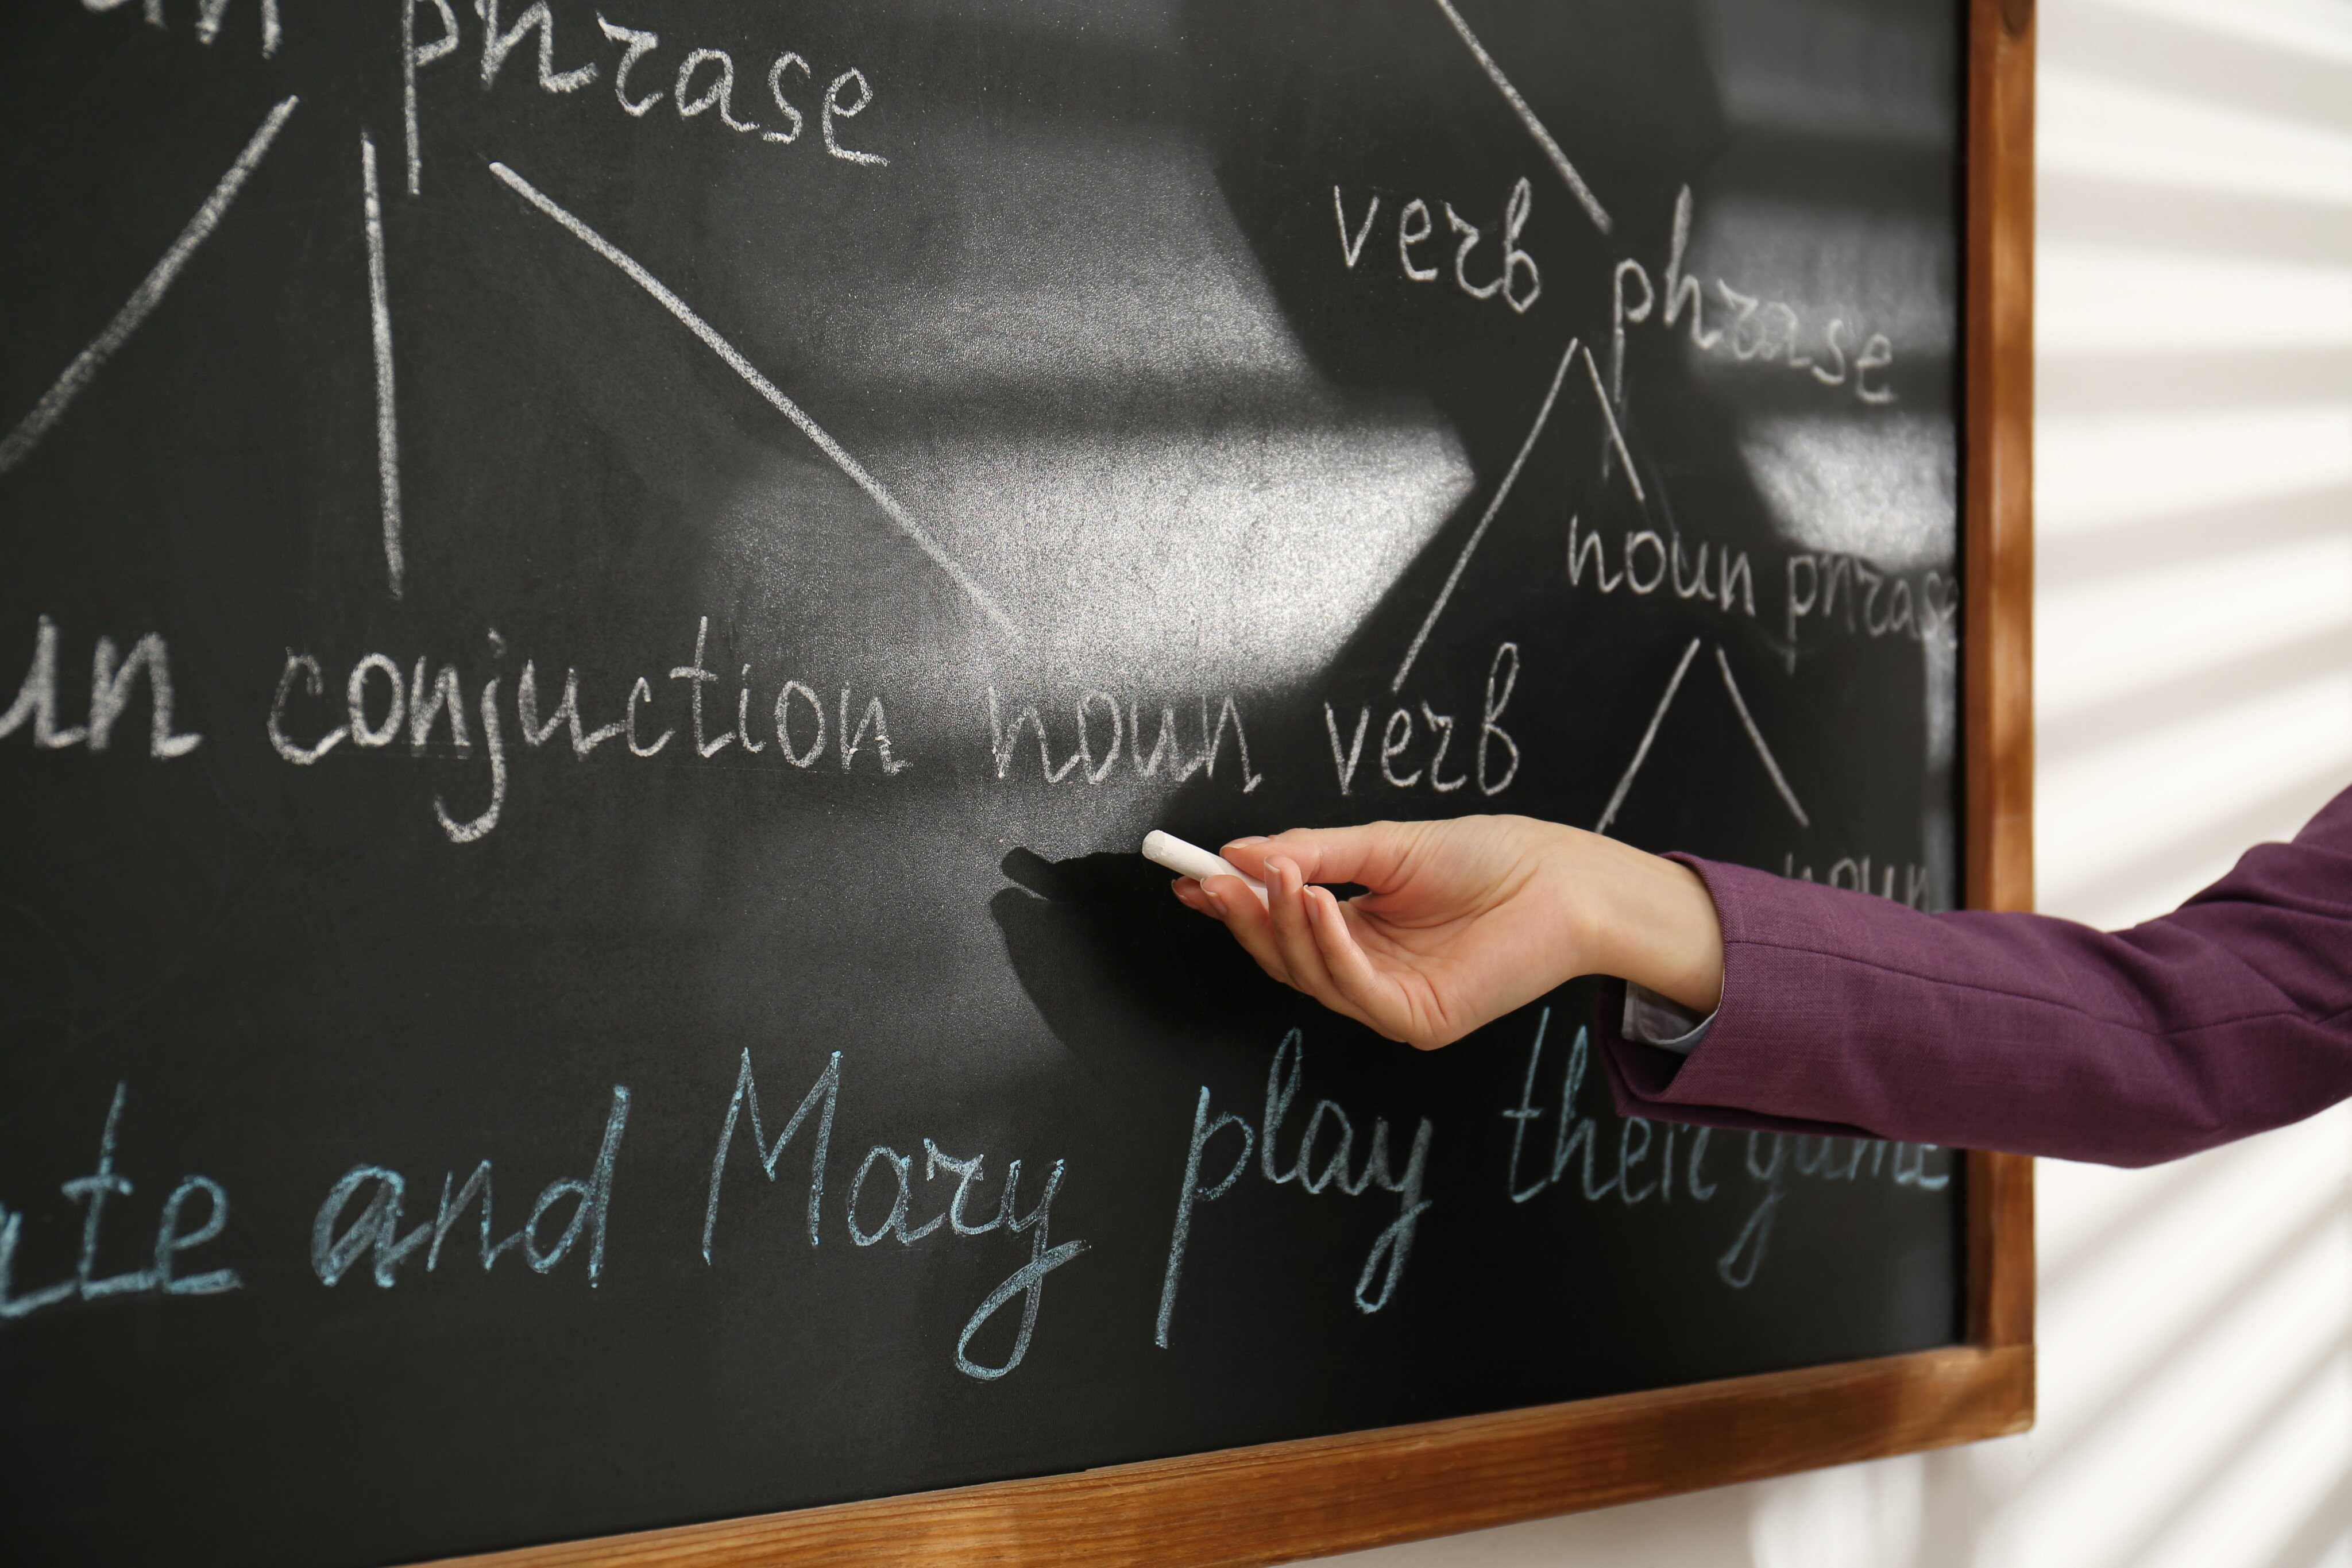 phrase
verb phrase
noun phrase
conjuction noun verb
noun
and Mary play their game